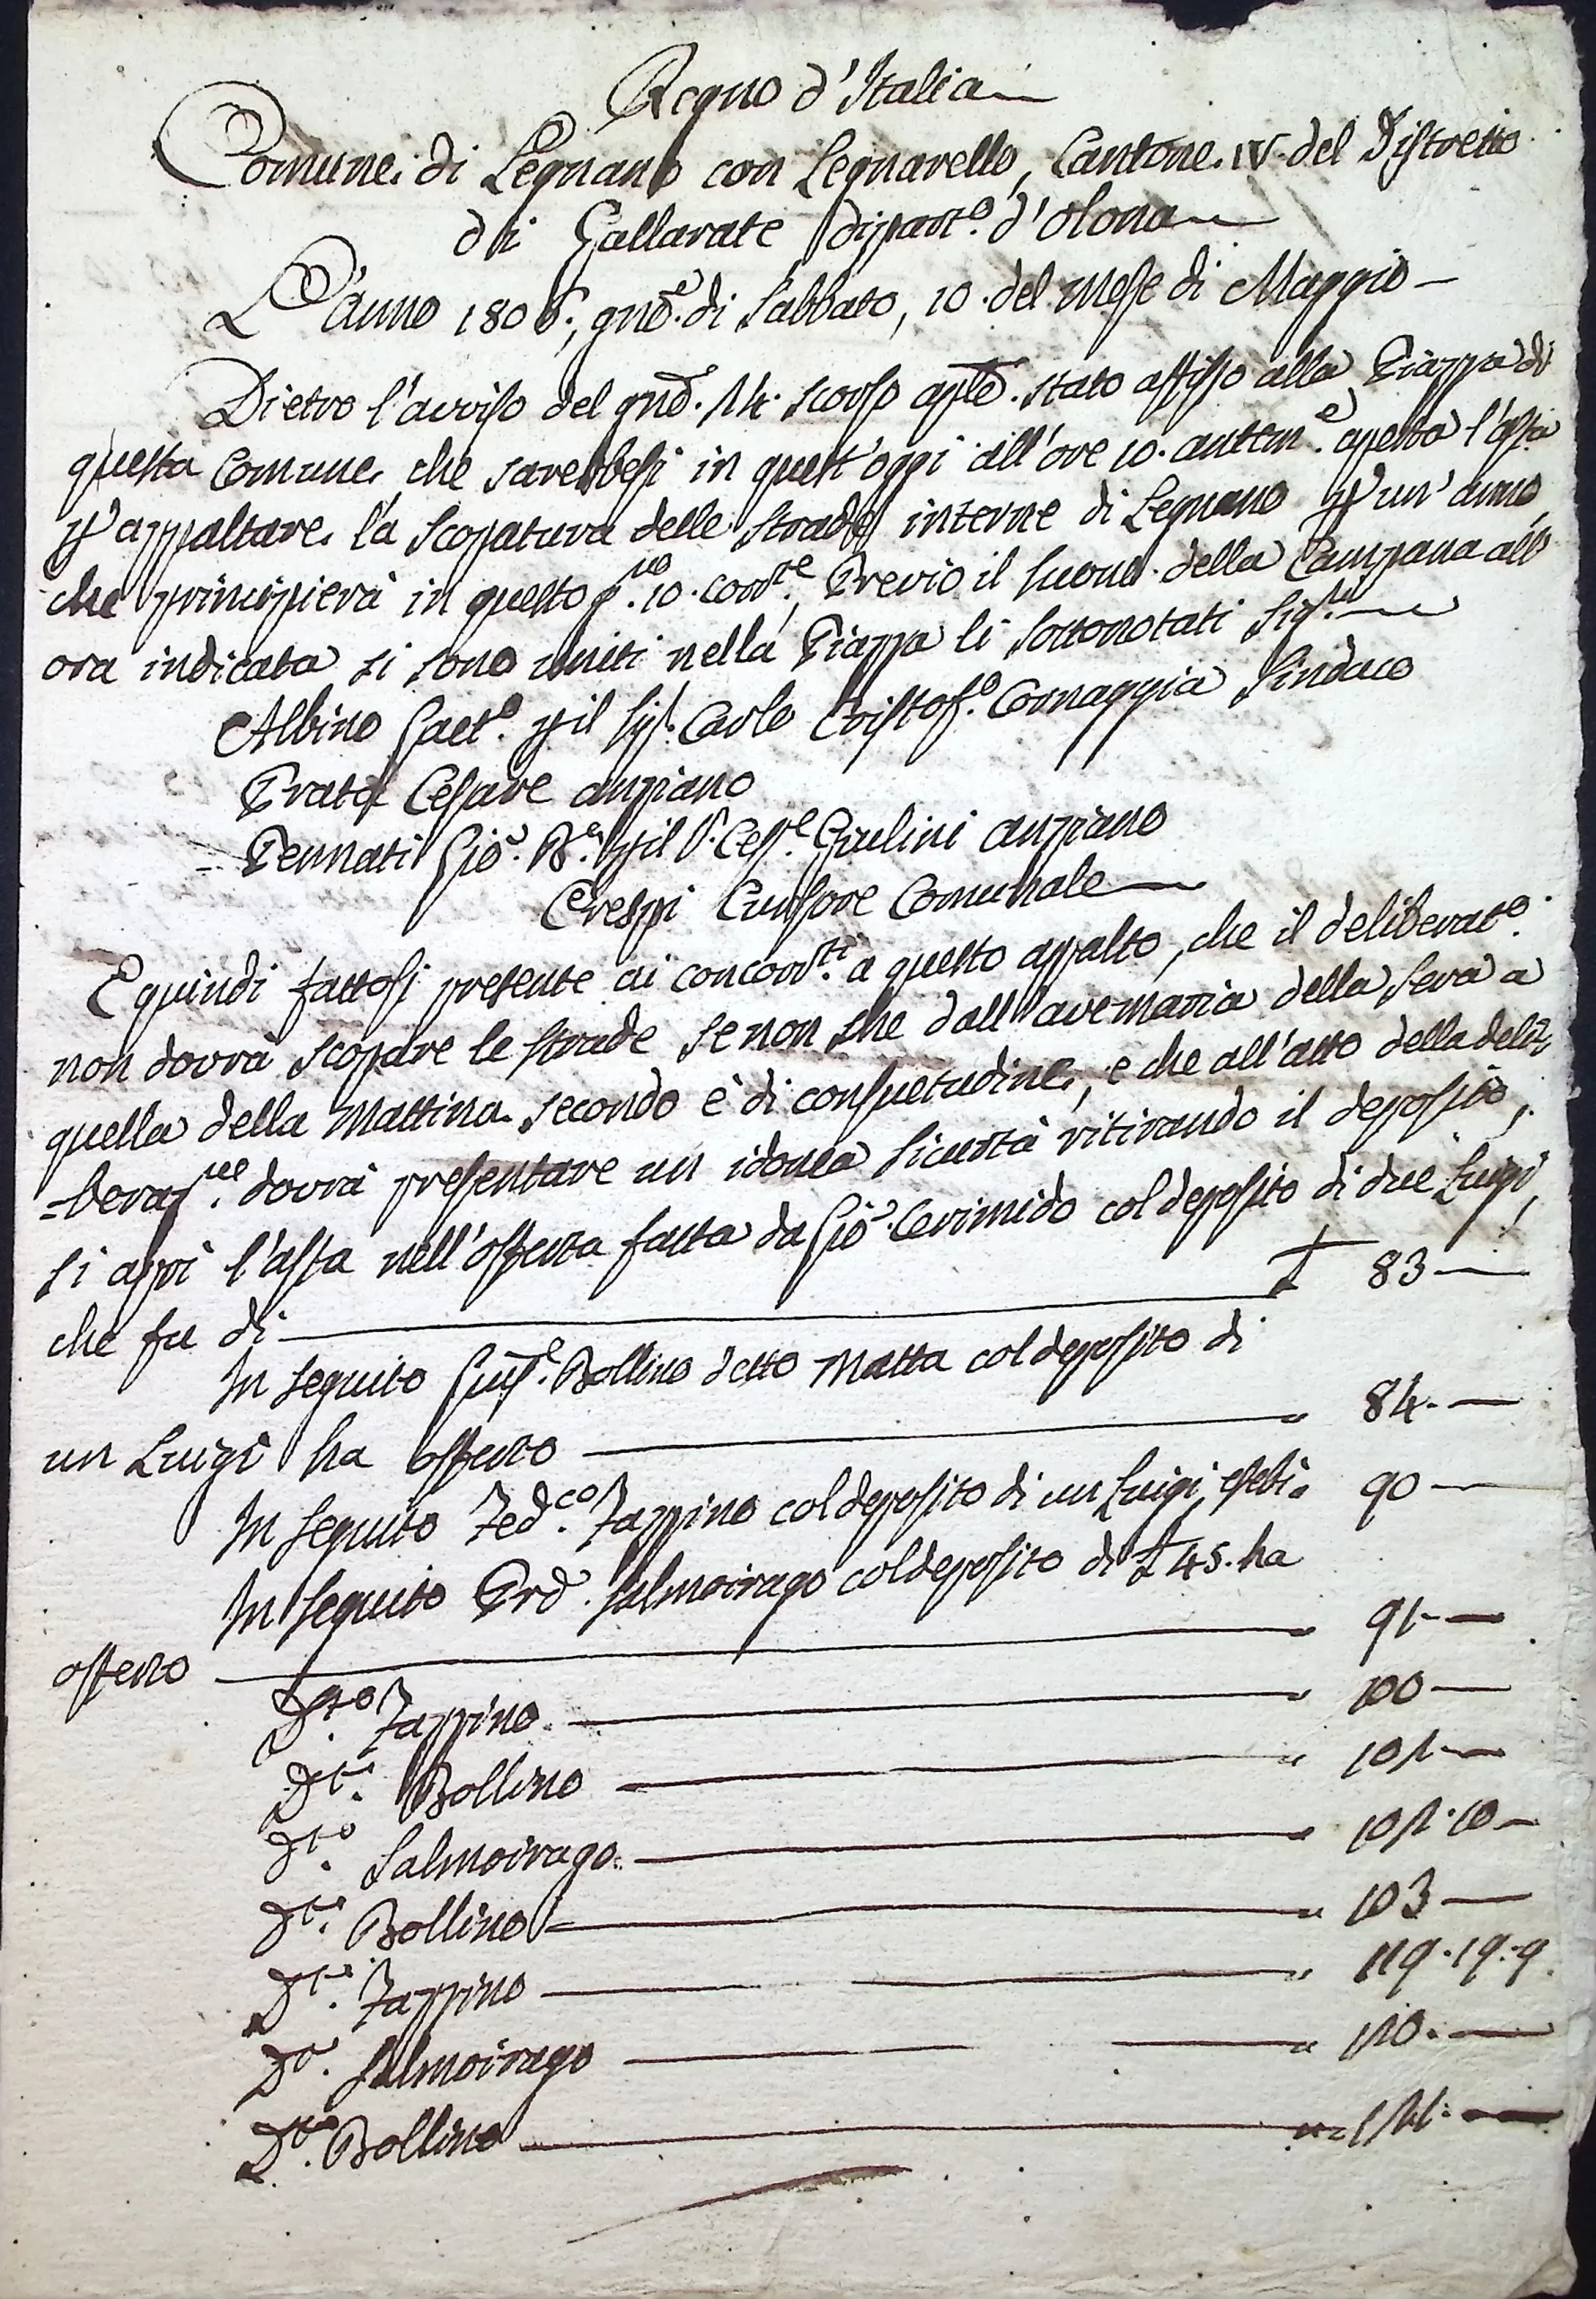 Regno d'Italia
Comune di Legnano con Legnarello, Cantone IV. del Distretto
di Gallarate Dipart.º d'Olona
L'anno 1806., gnõ. di Sabbato, 10. del mese di Maggio
Dietro l'avviso del gnõ. 14. scorso aplẽ. stato affisso alla Piazza di
questa Comune, che sarebbesi in quest'oggi all'ore 10. anttm.e aperta l'asta
p appaltare la scopatura delle strade interne di Legnano p un'anno,
che principierà in questo g.no 10. corr.te, Previo il suono della Campana all'
ora indicata si sono uniti nella Piazza li sottonotati Sig.ri
Albino Gaet.º p il Sig.r Carlo Cristof.º Cornaggia Sindaco
Prata Cesare anziano
Pennati Gio. B.a p il S.r Ces.e Giulini anziano
Crespi Cursore Comunale
E quindi fattosi presente ai concorr.ti a questo appalto, che il deliberat.º
non dovrà scopare le strade se non che dall'avemaria della sera a
quella della mattina secondo è di consuetudine, e che all'atto della deli=
=beraz.ne dovrà presentare un idonea sicurtà ritirando il deposito,
si aprì l'asta nell'offerta fatta da Gio. Cerimido col deposito di due Luigi,
che fu di £ 83 —
In seguito Gius.e Bollino detto Matta col deposito di
un Luigi ha offerto " 84. —
In seguito Fed.co Zappino col deposito di un Luigi, esebì " 90 —
In seguito Prõ. Salmoirago col deposito di £ 45. ha
offerto " 91 —
D.to Zappino " 100 —
D.to Bollino " 101 —
D.to Salmoirago " 101. 10 —
D.to Bollino " 103 —
D.to Zappino " 119. 19. 9.
D.o Salmoirago " 110. —
D.to Bollino " 111. —